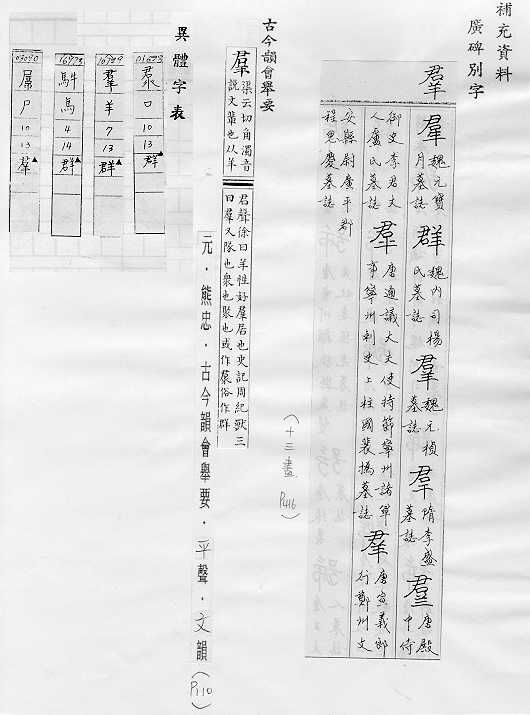 補充資料
廣碑別字
羣
羣魏元寶月墓誌群魏內司楊氏墓誌羣魏元楨墓誌羣隋李盛墓誌羣唐殿中侍
御史李君夫人盧氏墓誌羣唐通議大夫使持節寧州諸軍事寧州刺史上柱國裴撝墓誌羣唐宣義郎行鄭州文
安縣尉廣平郡程思慶墓誌
(十三畫 P416)
古今韻會舉要
羣渠云切角濁音
說文輩也从羊
君聲徐曰羊性好羣居也史記周紀獸三
曰羣又隊也衆也聚也或作
俗作群
元．熊忠．古今韻會舉要．平聲．文韻(P110)
異體字表
口 10 13 群▲
羣 羊 7 13 群▲
馬 4 14 群▲
尸 10 13